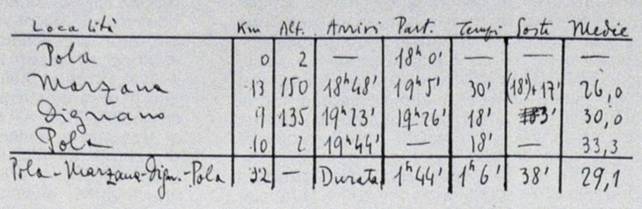 Località Km Alt. Arrivi Part. Tempi Soste Medie
Pola 0 2 — 18h 0' — — —
Marzana 13 150 18h48' 19h5' 30' (18')+17' 26,0
Dignano 9 135 19h23' 19h26' 18' 3' 30,0
Pola 10 2 19h44' — 18' — 33,3
Pola-Marzana-Dign.-Pola 32 — Durata 1h44' 1h6' 38' 29,1